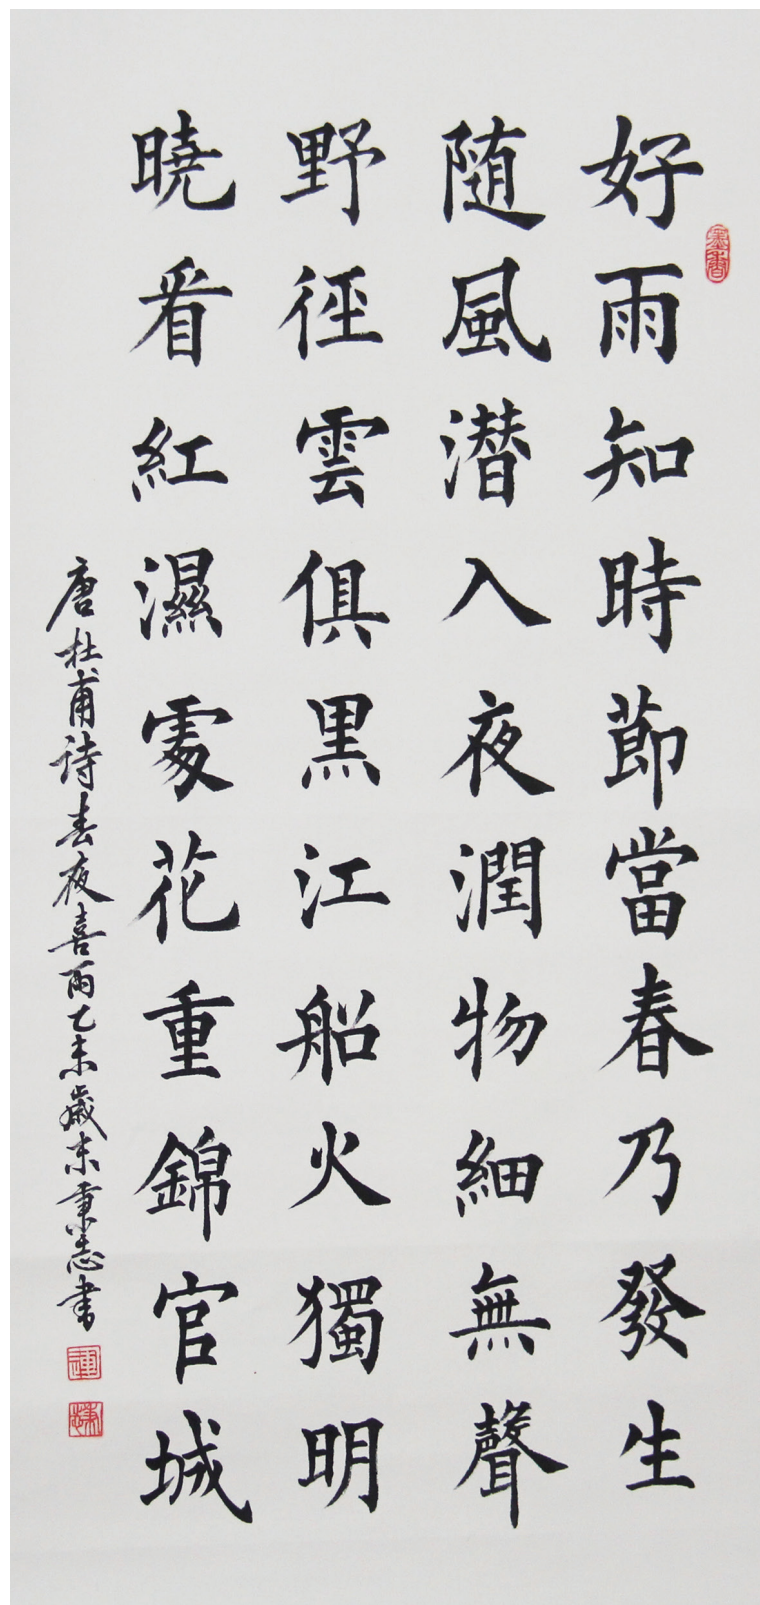 好雨知時節當春乃發生
随風潛入夜潤物細無聲
野徑雲俱黒江船火獨明
曉看紅濕處花重錦官城
唐杜甫詩春夜喜雨乙未歲末秉志書